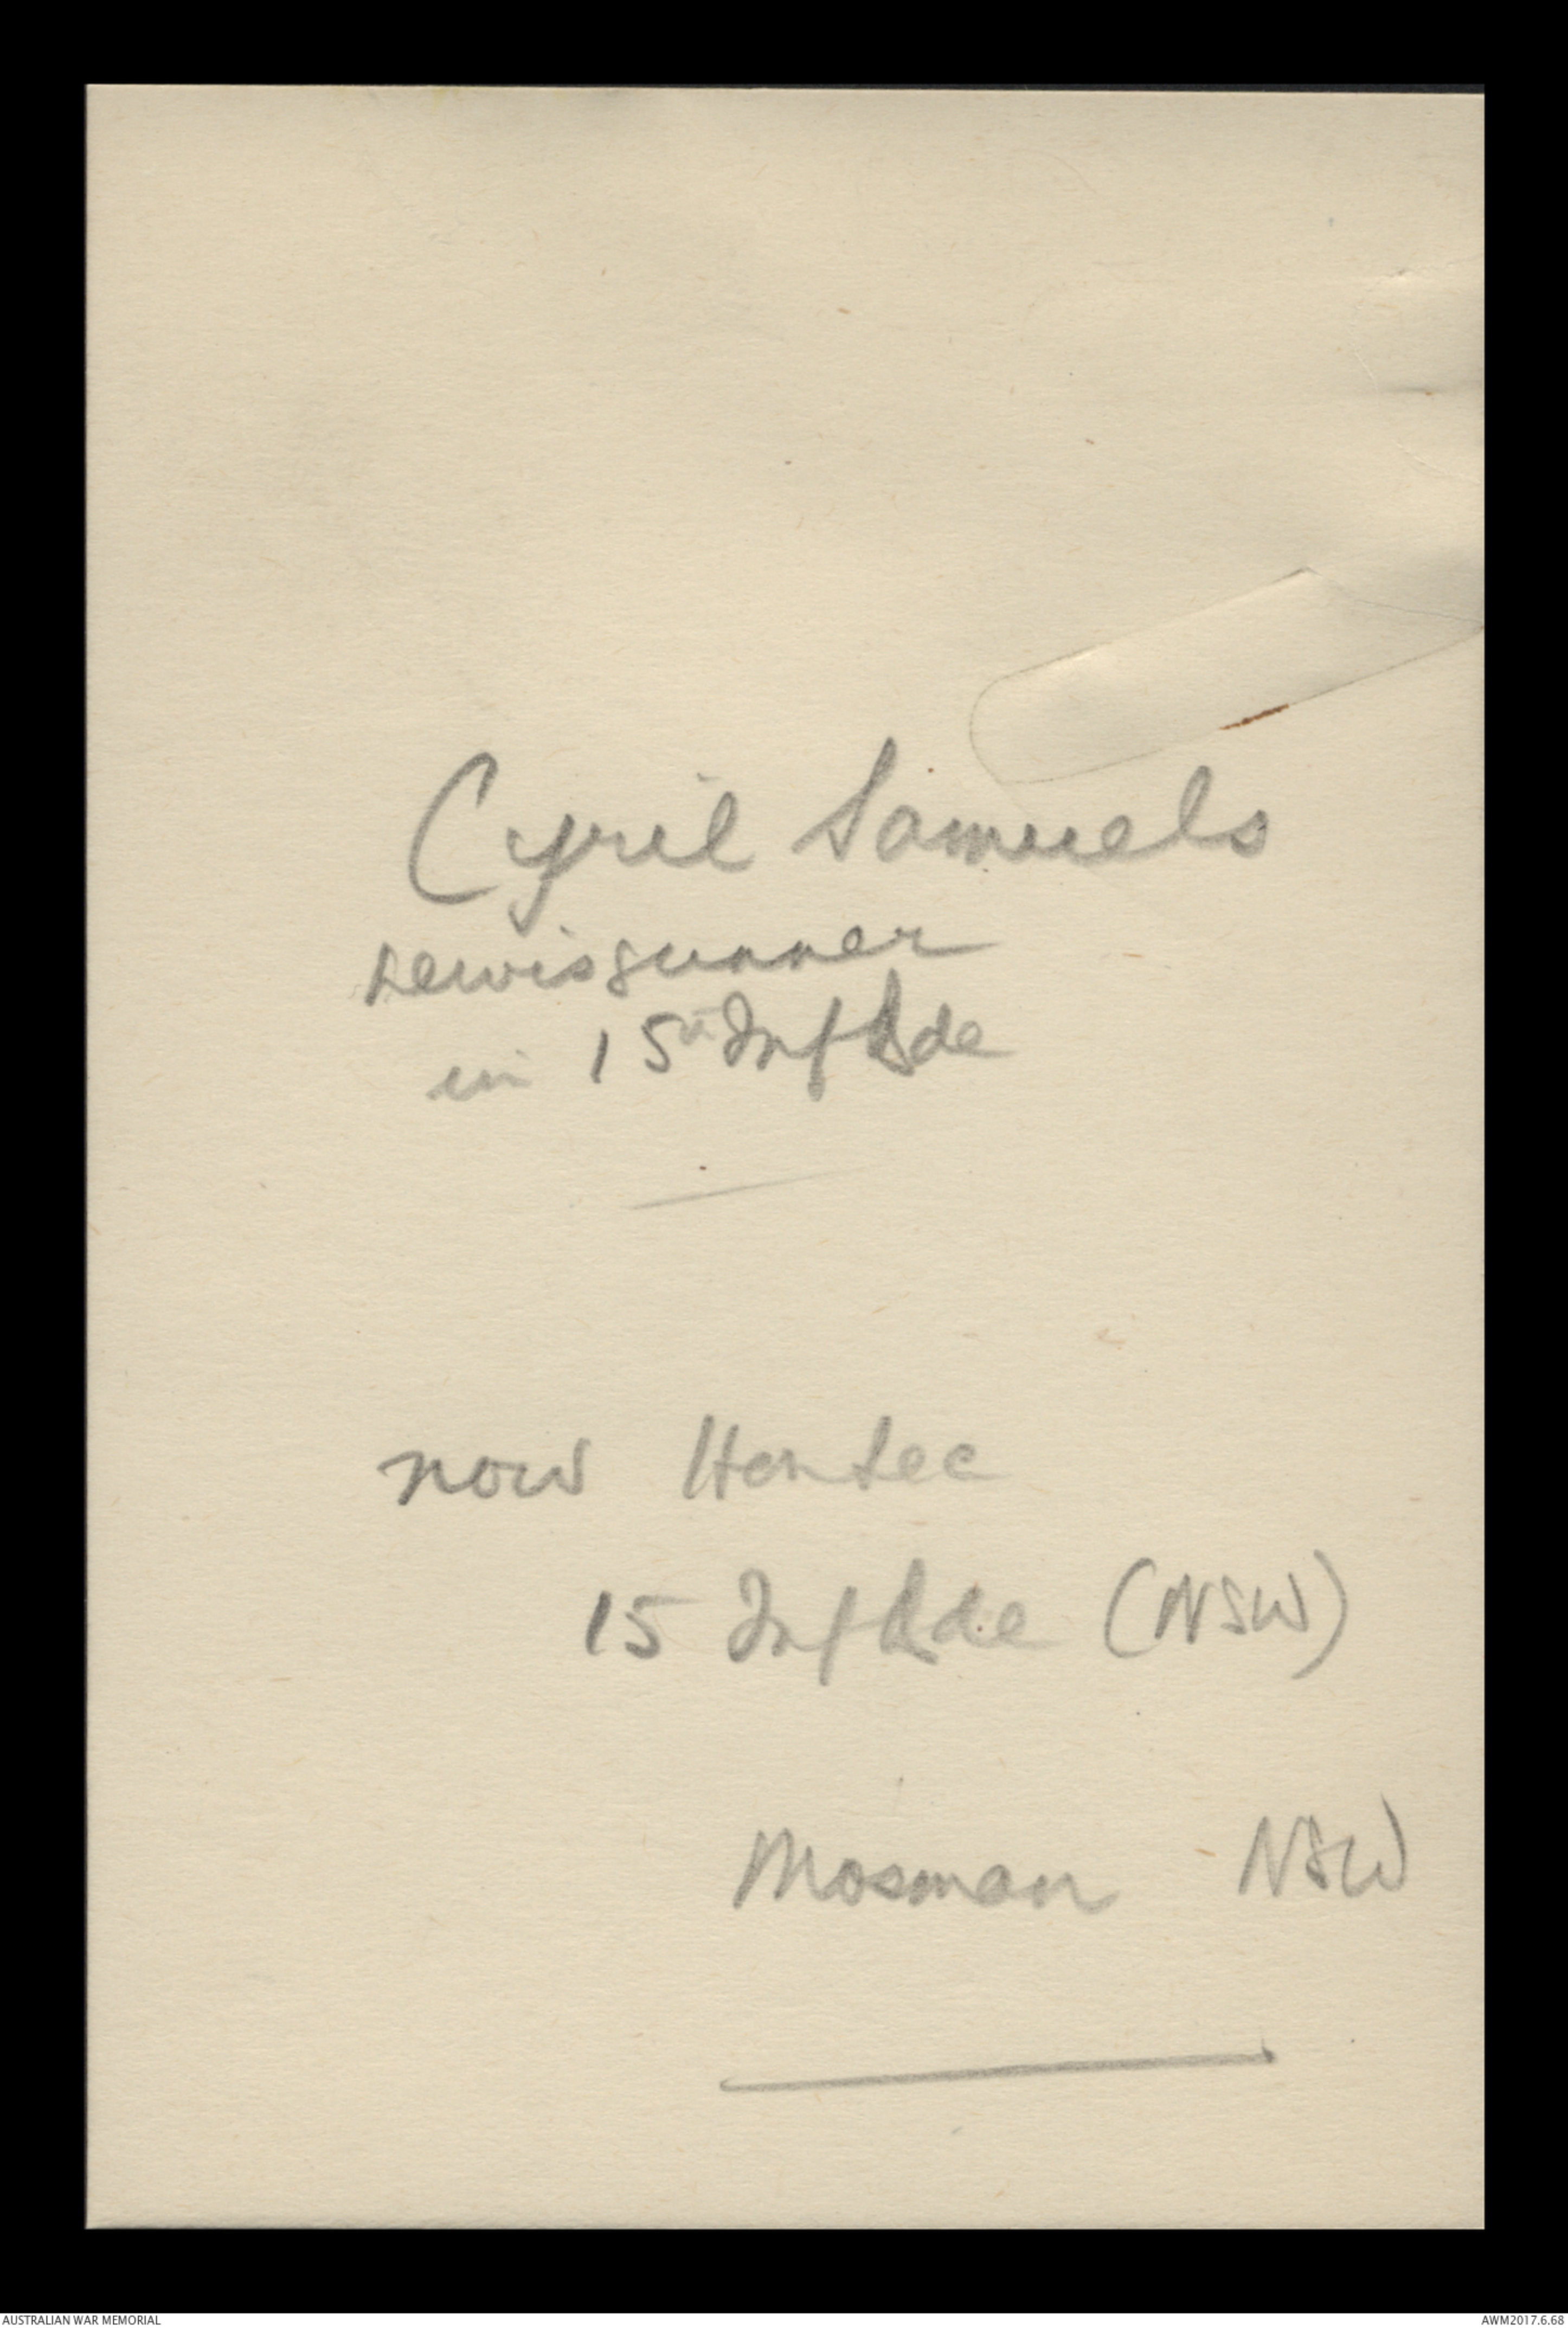 Cyril Samuels
Lewisgunner
in 15th Inf Bde
now Hon Sec
15 Inf Bde (NSW)
Mosman NSW
AUSTRALIAN WAR MEMORIAL
AWM2017.6.68